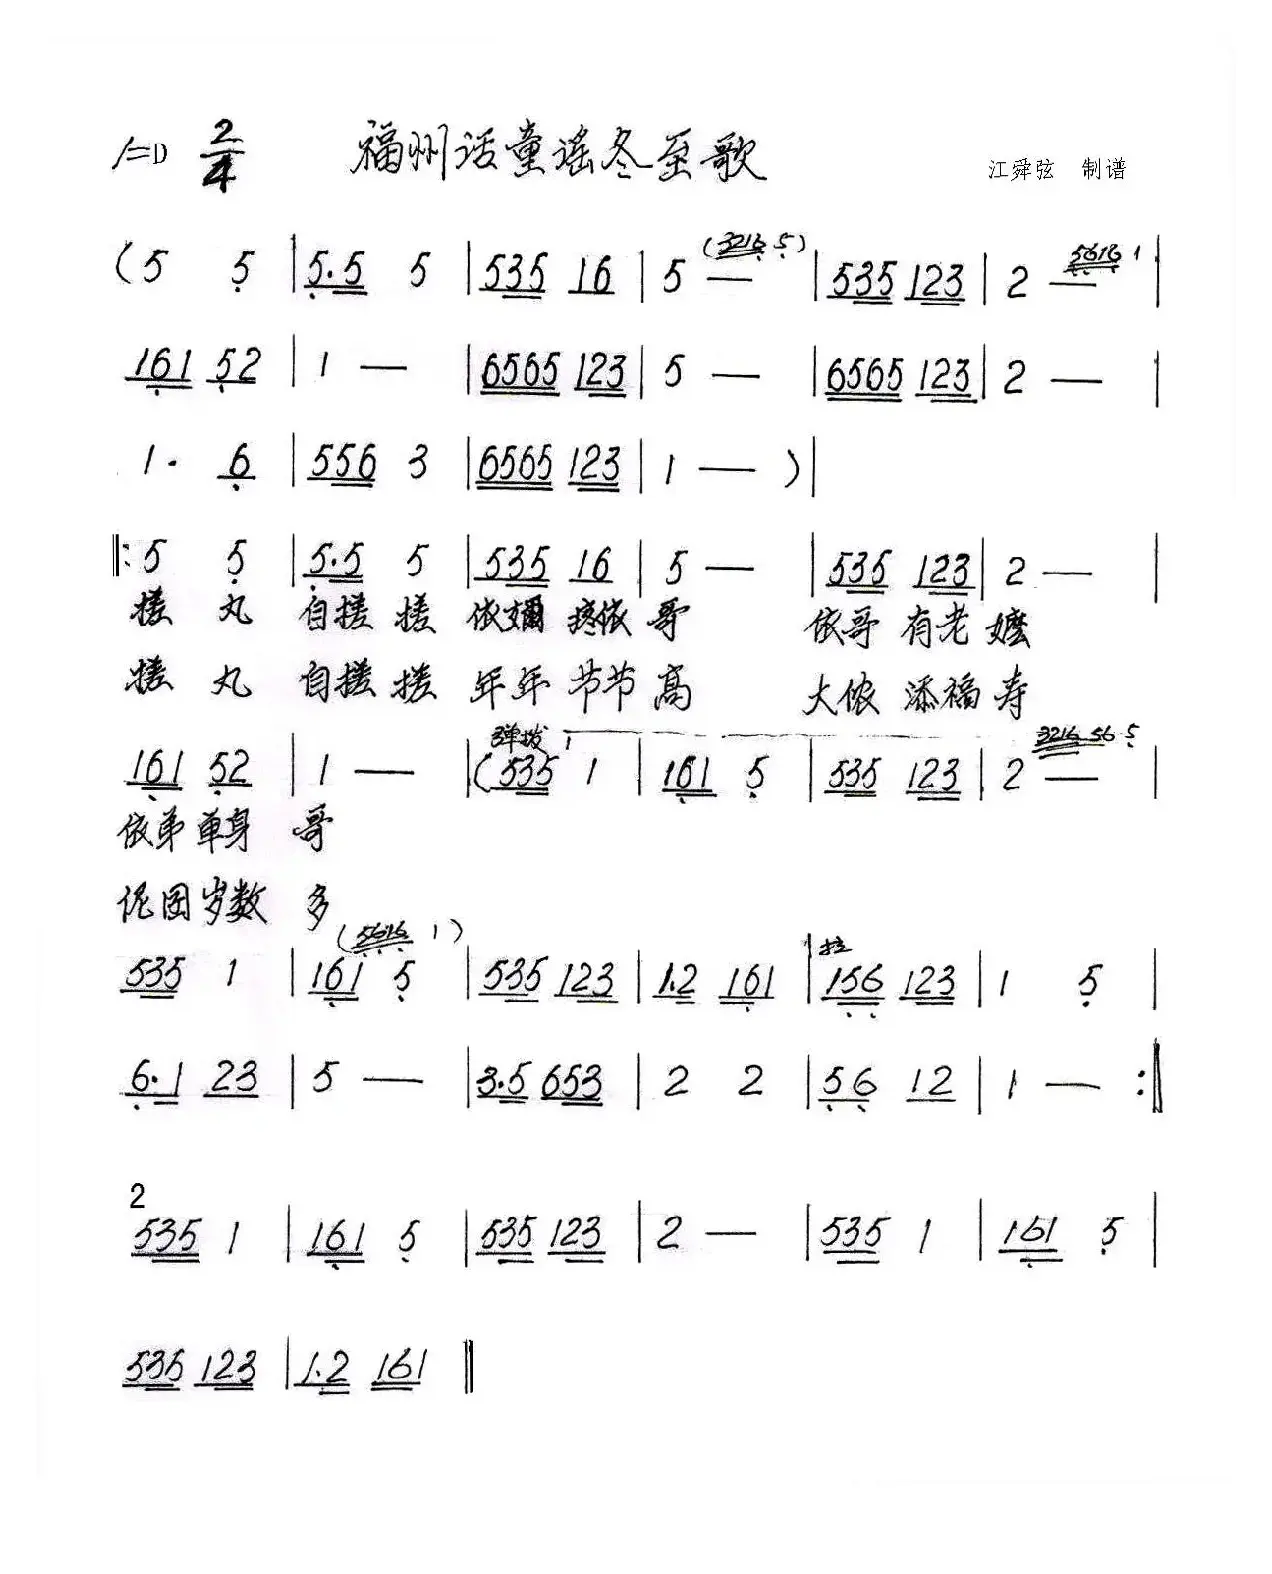 1=D 2/4 福州话童谣冬至歌 江舜弦 制谱
(3216 5) 5616 1
(5 5 | 5.5 5 | 535 16 | 5 — | 535 123 | 2 — |
161 52 | 1 — | 6565 123 | 5 — | 6565 123 | 2 — |
1. 6 | 556 3 | 6565 123 | 1 — ) |
‖: 5 5 | 5.5 5 | 535 16 | 5 — | 535 123 | 2 — |
搓 丸 自搓 搓 依嬭 疼依 哥 依哥 有老 嬷
搓 丸 自搓 搓 年年 节节 高 大侬 添福 寿
弹拨 1 3216 56 5
161 52 | 1 — | (535 1 | 161 5 | 535 123 | 2 — |
依弟 单身 哥
伲囝 岁数 多
(5616 1) 拉
535 1 | 161 5 | 535 123 | 1.2 161 | 156 123 | 1 5 |
6.1 23 | 5 — | 3.5 653 | 2 2 | 56 12 | 1 — :‖
2
535 1 | 161 5 | 535 123 | 2 — | 535 1 | 161 5 |
535 123 | 1.2 161 ‖